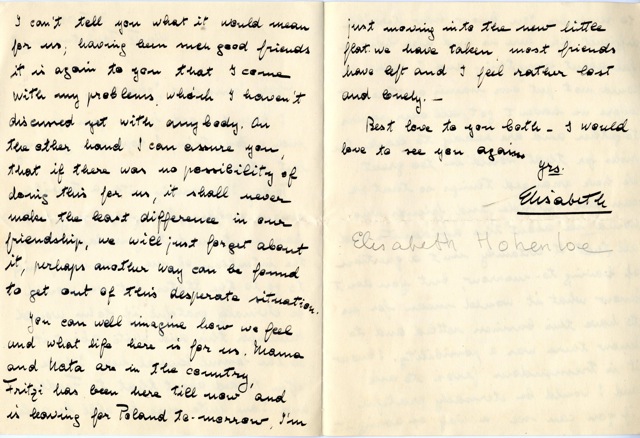 I can't tell you what it would mean
for us; having been such good friends
it is again to you that I come
with my problems, which I haven't
discussed yet with anybody. On
the other hand I can assure you,
that if there was no possibility of
doing this for us, it shall never
make the least difference in our
friendship, we will just forget about
it, perhaps another way can be found
to get out of this desperate situation.
You can well imagine how we feel
and what life here is for us. Mama
and Nata are in the country,
Fritzi has been here till now and
is leaving for Poland to-morrow, I'm
just moving into the new little
flat we have taken, most friends
have left and I feel rather lost
and lonely. —
Best love to you both — I would
love to see you again,
yrs.
Elisabeth
Elisabeth Hohenloe